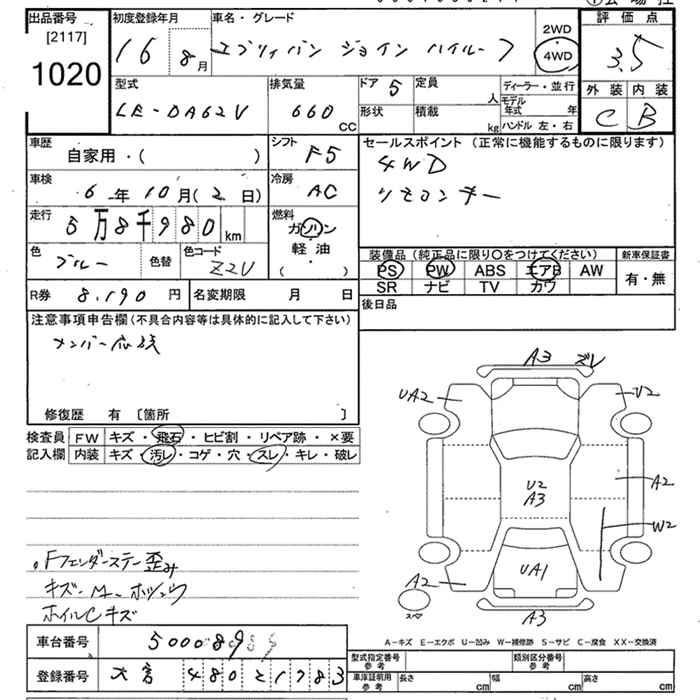 出品番号
[2117]
1020
初度登録年月
16 8月
車名・グレード
エブリィバン ジョイン ハイルーフ
2WD
4WD
評価点
3.5
外装 内装
C B
型式
LE-DA62V
排気量
660 CC
ドア 5
形状
定員 人
積載 kg
ディーラー・並行
モデル年式 年
ハンドル 左・右
車歴
自家用・( )
シフト
F5
セールスポイント (正常に機能するものに限ります)
4WD
リモコンキー
車検
6年10月(2日)
冷房
AC
走行
5万8千980km
燃料
ガソリン
軽油
( )
色
ブルー
色替
色コード
Z2U
装備品 (純正品に限り○をつけてください)
新車保証書
PS PW ABS エアB AW
SR ナビ TV カワ
有・無
R券 8,190円
名変期限 月 日
後日品
注意事項申告欄(不具合内容等は具体的に記入して下さい)
メンバー応錆
修復歴 有 〔箇所 〕
検査員
記入欄
FW キズ・飛石・ヒビ割・リペア跡・×要
内装 キズ・汚レ・コゲ・穴・スレ・キレ・破レ
Fフェンダーステー歪み
ホイルCキズ
A3 ズレ
UA2
U2
U2
A3
A2
W2
UA1
A2
スペア
A3
A-キズ E-エクボ U-凹み W-補修跡 S-サビ C-腐食 XX-交換済
車台番号
登録番号
大宮 480 2 1783
型式指定番号
参考
類別区分番号
参考
車庫証明用
参考
長さ cm 幅 cm 高さ cm